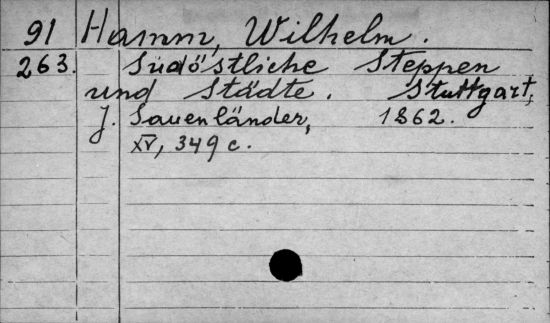 91 Hamm, Wilhelm.
263. Südöstliche Steppen
und Städte. Stuttgart,
J. Sauenländer, 1862.
XV, 349 c.